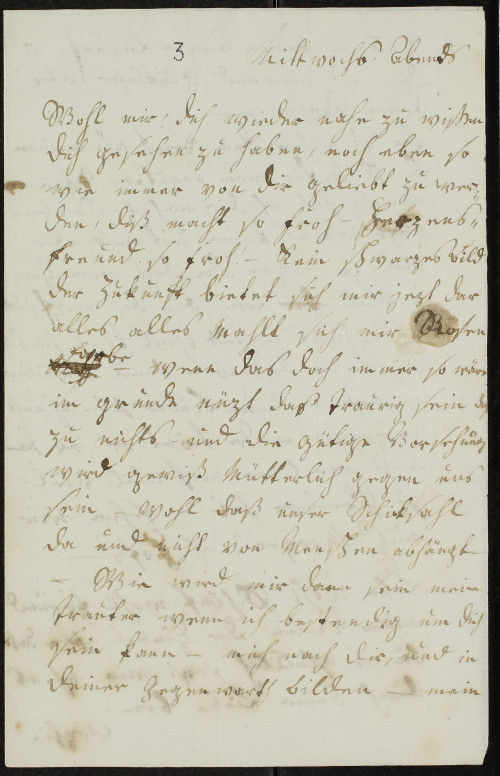 3
Mittwochs Abends
Wohl mir, dich wieder nahe zu wißen
dich gesehen zu haben, noch eben so
wie immer von dir geliebt zu wer-
den, diß macht so froh – Herzens-
freund, so froh – Kein schwarzes bild
der Zukunft bietet sich mir jezt dar
alles alles mahlt sich mir Rosen
farbe – wenn das doch immer so wäre
im grunde nüzt das traurig sein doch
zu nichts – und die gütige Vorsehung
wird gewiß Mütterlich gegen uns
sein – wohl daß unser Schiksahl
da und nicht von Menschen abhängt –
– Wie wird mir dann sein mein
trauter wenn ich bestendig um dich
sein kann – mich nach dir, und in
deiner Gegenwart bilden – mein